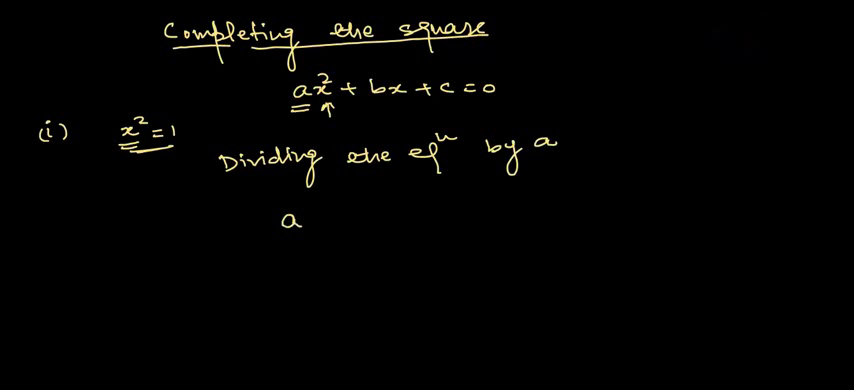 Completing the square
ax² + bx + c = 0
(i) x² = 1
Dividing the eqⁿ by a
a